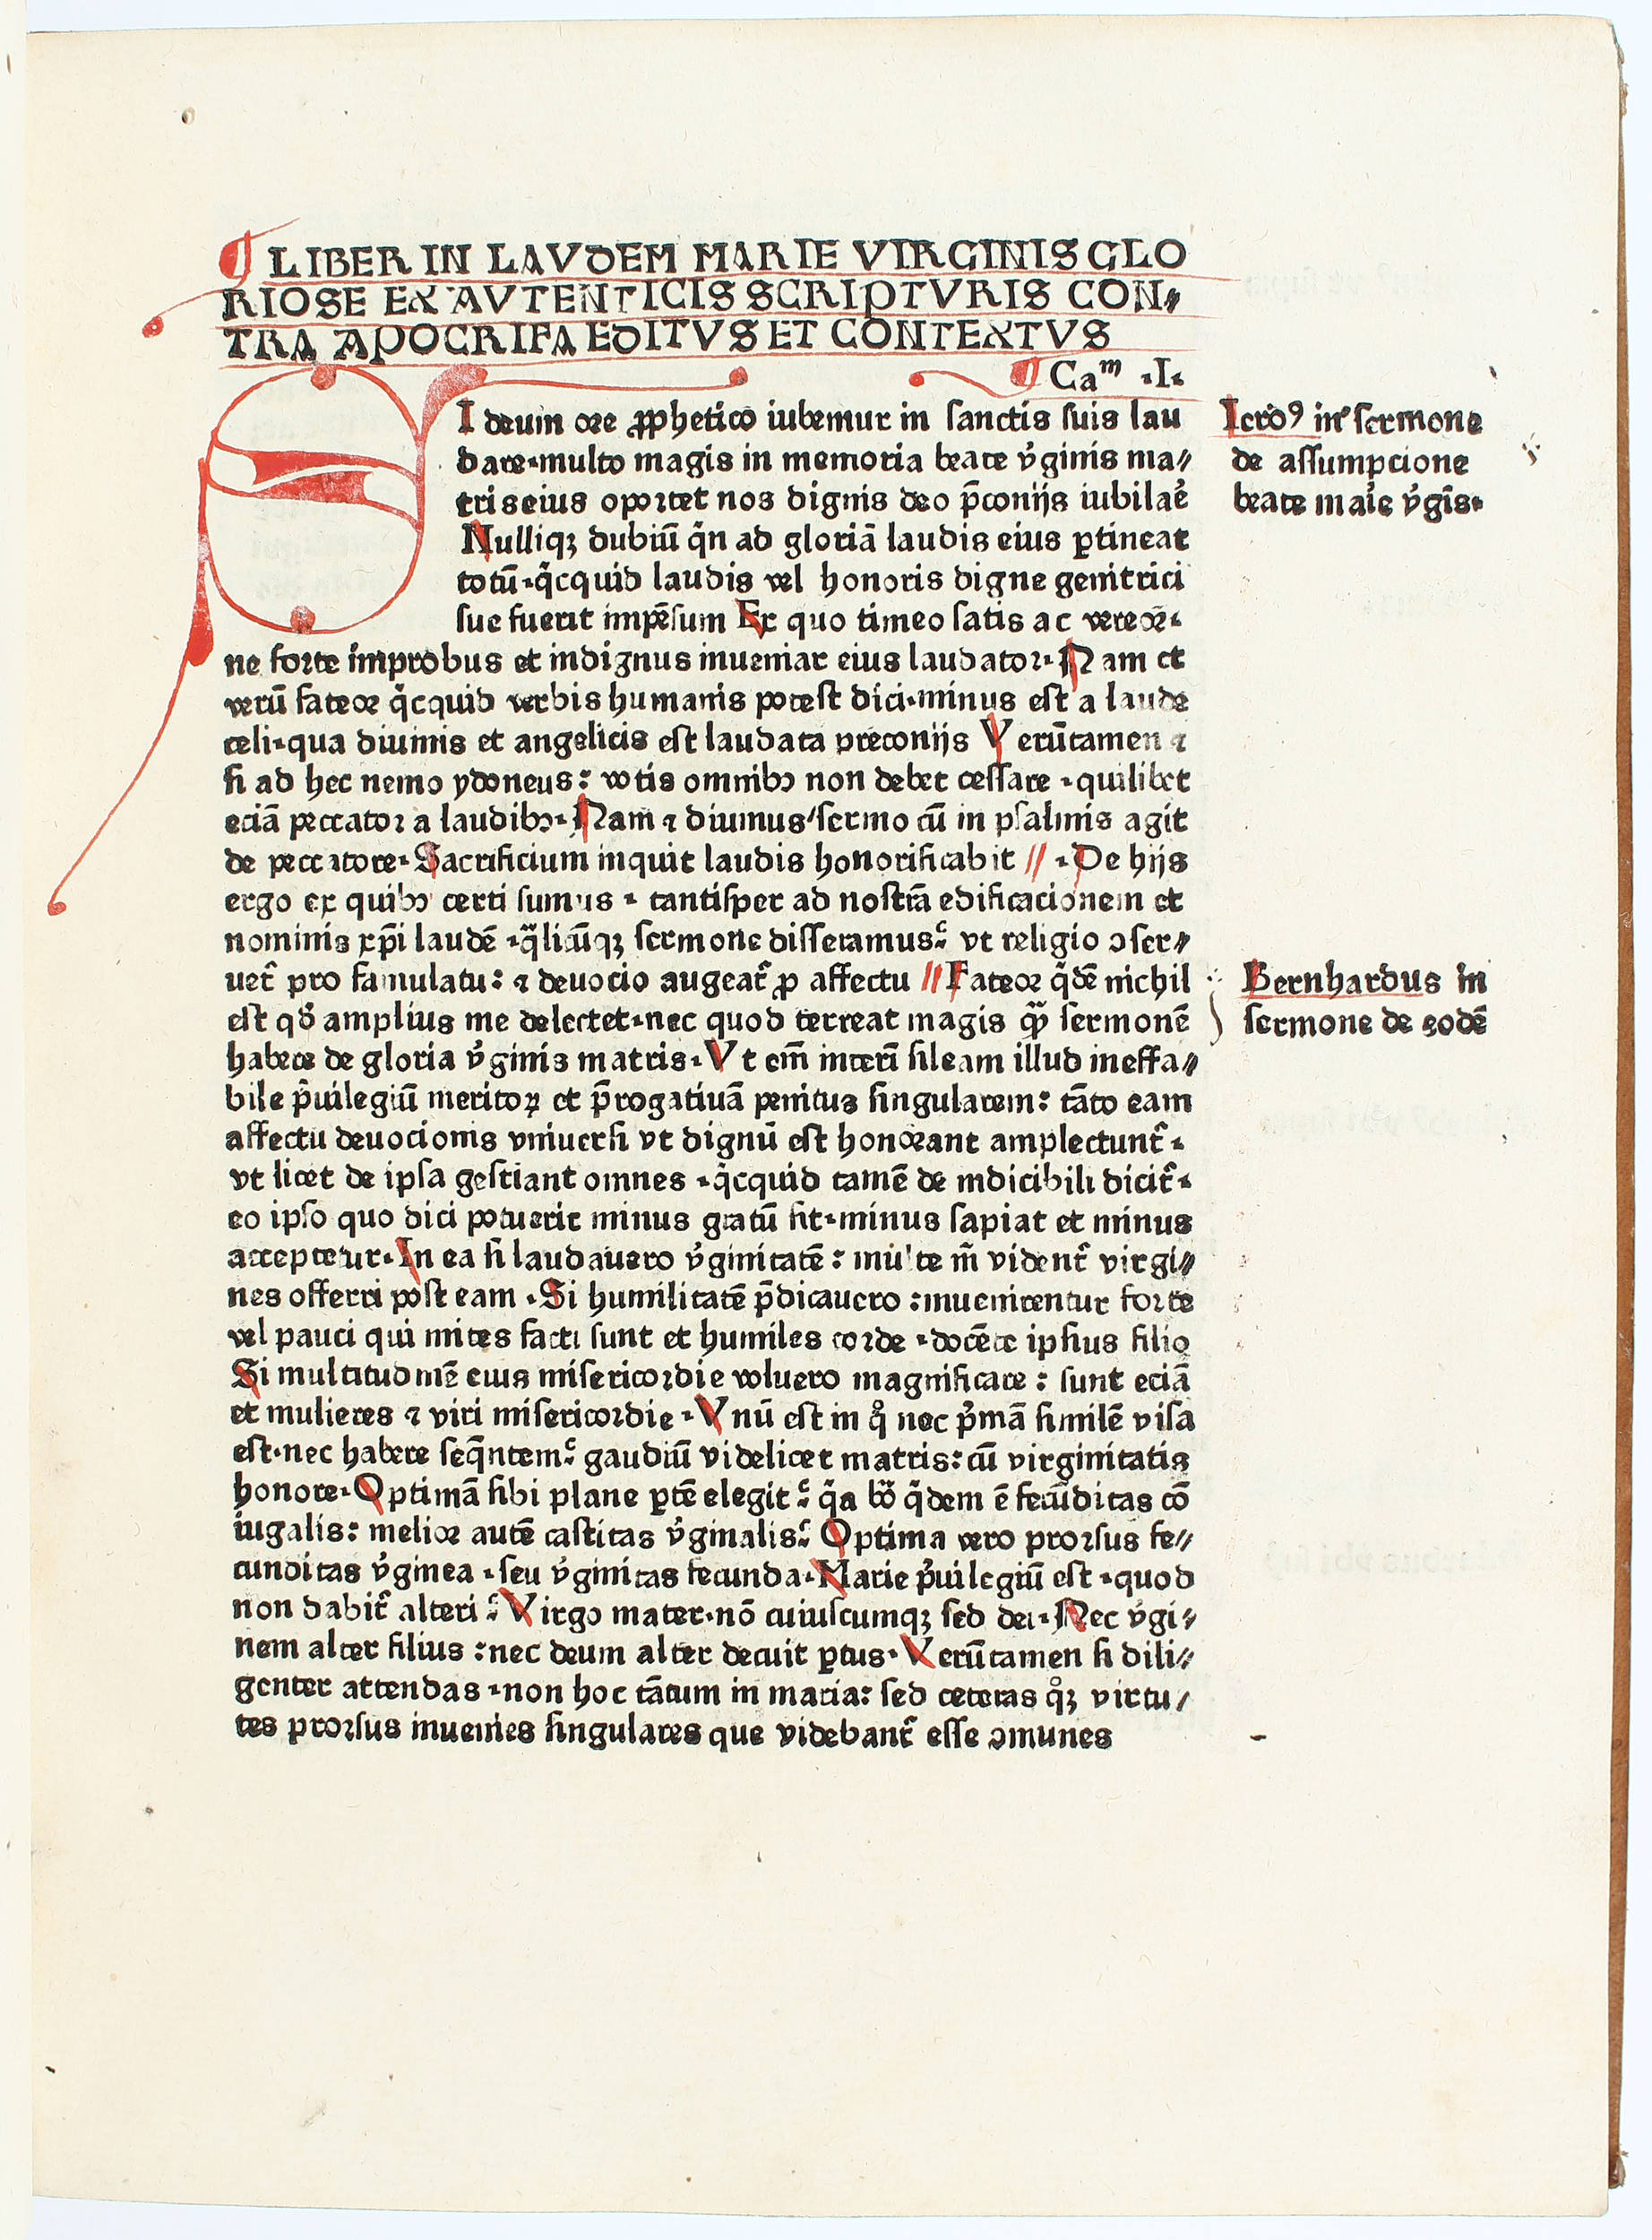 ¶ LIBER IN LAVDEM MARIE VIRGINIS GLO
RIOSE EX AVTENTICIS SCRIPTVRIS CON⸗
TRA APOCRIFA EDITVS ET CONTEXTVS
¶ Caᵐ .I.
SI deum ore ꝓphetico iubemur in sanctis suis lau
dare.multo magis in memoria beate v̓ginis ma⸗
tris eius oportet nos dignis deo p̄conijs iubilar̓
Nulliqꝫ dubiū q̄n ad gloriā laudis eius ꝑtineat
totū.q̇cquid laudis vel honoris digne genitrici
sue fuerit impēsum Ex quo timeo satis ac vereor.
ne forte improbus et indignus inueniar eius laudator. Nam et
verū fateor q̇cquid verbis humanis potest dici.minus est a laude
celi.qua diuinis et angelicis est laudata preconijs Verūtamen ⁊
si ad hec nemo ydoneus: votis omnibꝰ non debet cessare .quilibet
eciā peccator a laudibꝰ. Nam ⁊ diuinus sermo cū in psalmis agit
de peccatore. Sacrificium inquit laudis honorificabit // .De hijs
ergo ex quibꝰ certi sumus . tantisper ad nostrā edificacionem et
nominis xp̄i laudē .q̄licūqꝫ sermone disseramus: vt religio ꝯser⸗
uet᷑ pro famulatu: ⁊ deuocio augeat᷑ ꝓ affectu // Fateor q̇dē nichil
est qd̓ amplius me delectet.nec quod terreat magis qͣꝫ sermonē
habere de gloria v̓ginis matris. Vt em̄ interī sileam illud ineffa⸗
bile p̓uilegiū meritoꝝ et p̄rogatiuā penitus singularem: tāto eam
affectu deuocionis vniuersi vt dignū est honorant amplectunt᷑.
vt licet de ipsa gestiant omnes .q̇cquid tamē de indicibili dicit᷑.
eo ipso quo dici potuerit minus gratū sit.minus sapiat et minus
acceptetur. In ea si laudauero v̓ginitatē: mul̓te m̄ vident᷑ virgi⸗
nes offerri post eam .Si humilitatē p̄dicauero :inuenirentur forte
vel pauci qui mites facti sunt et humiles corde .docēte ipsius filio
Si multitudinē eius misericordie voluero magnificare : sunt eciā
et mulieres ⁊ viri misericordie. Vnū est in q̊ nec p̓mā similē visa
est.nec habere seq̄ntem: gaudiū videlicet matris: cū virginitatis
honore. Optimā sibi plane ꝑtē elegit: qͣa boͣ q̇dem ē fecūditas cō
iugalis: melior autē castitas v̓ginalis: Optima vero prorsus fe⸗
cunditas v̓ginea .seu v̓ginitas fecunda. Marie p̓uilegiū est .quod
non dabit᷑ alteri: Virgo mater.nō cuiuscumqꝫ sed dei. Nec v̓gi⸗
nem alter filius :nec deum alter decuit ꝑtus. Verūtamen si dili⸗
genter attendas .non hoc tātum in maria: sed ceteras q̊ꝫ virtu⸗
tes prorsus inuenies singulares que videbant᷑ esse ꝯmunes
Ierōꝰ in sermone
de assumpcione
beate maīe v̓gīs.
Bernhardus in
sermone de eodē